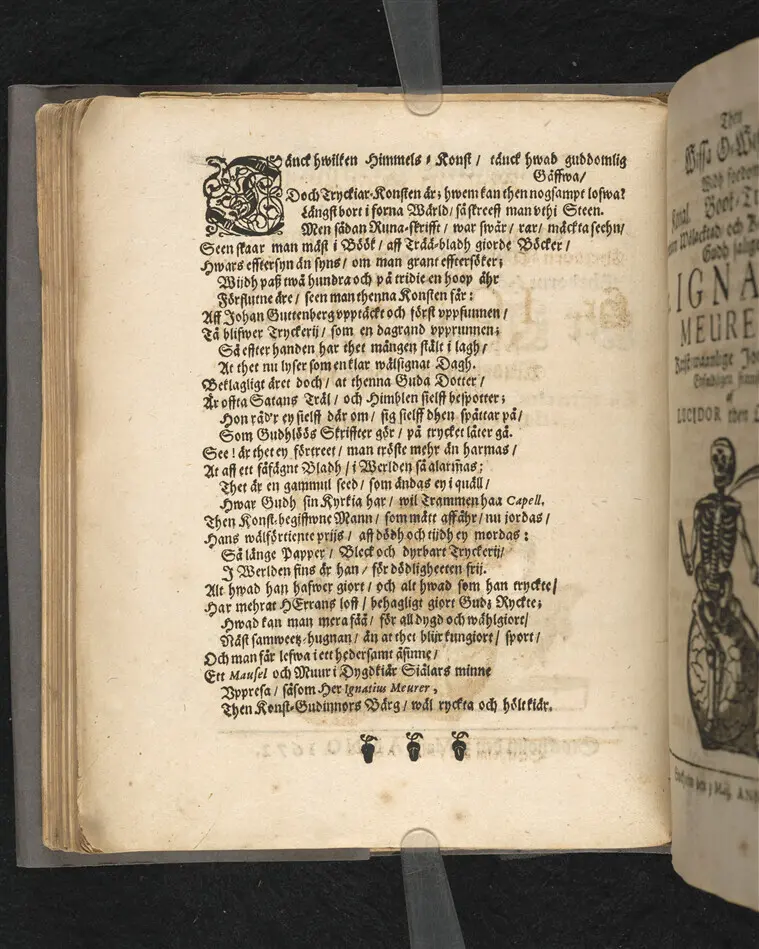 Tänck hwilken Himmels-Konst / tänck hwad guddomlig
Gäffwa /
Doch Tryckiar-Konsten är; hwem kan then nogsampt lofwa?
Längst bort i forna Wärld / så skreeff man vthi Steen.
Men sådan Runa-skrifft / war swår / rar / mäckta seehn /
Seen skaar man mäst i Böök / aff Trää-bladh giorde Böcker /
Hwars efftersyn än syns / om man grant effter söker;
Widh paß twå hundra och på tridie en hoop åhr
Förflutne äre / seen man thenna Konsten får:
Aff Johan Guttenberg vptäckt och först vppfunnen /
Tå blifwer Tryckerij / som en dagrand vpprunnen;
Så effter handen har thet mången stält i lagh /
At thet nu lyser som en klar wälsignat Dagh.
Beklagligt äret doch / at thenna Guda Dotter /
Är offta Satans Träl / och Himblen sielff bespotter;
Hon råd'r ey sielff där om / sig sielff dhen spåttar på /
Som Gudhlöös Skriffter gör / på trycket låter gå.
See! är thet ey förtreet / man tröste mehr än harmas /
At aff ett såfägnt Bladh / i Werlden så alarmas;
Thet är en gammul seed / som ändas ey i quäll /
Hwar Gudh sin Kyrkia har / wil Trammen haa Capell.
Then Konst-begiffwne Mann / som mått affåhr / nu jordas /
Hans wälförtiente prijs / aff dödh och tijdh ey mordas:
Så länge Papper / Bleck och dyrbart Tryckerij /
I Werlden fins är han / för dödligheeten frij.
Alt hwad han hafwer giort / och alt hwad som han tryckte /
Har mehrat HErrans loff / behagligt giort Gudz Ryckte;
Hwad kan man mera fåå / för all dygd och wählgiort /
Näst samweetz-hugnan / än at thet blijr kungiort / sport /
Och man får lefwa i ett hedersamt åsinne /
Ett Mausel och Muur i Dygdkiär Siälars minne
Vppresa / såsom Her Ignatius Meurer,
Then Konst-Gudinnors Bärg / wäl ryckta och hölt kiär.
Then
IGNA
MEURE
af
LUCIDOR then